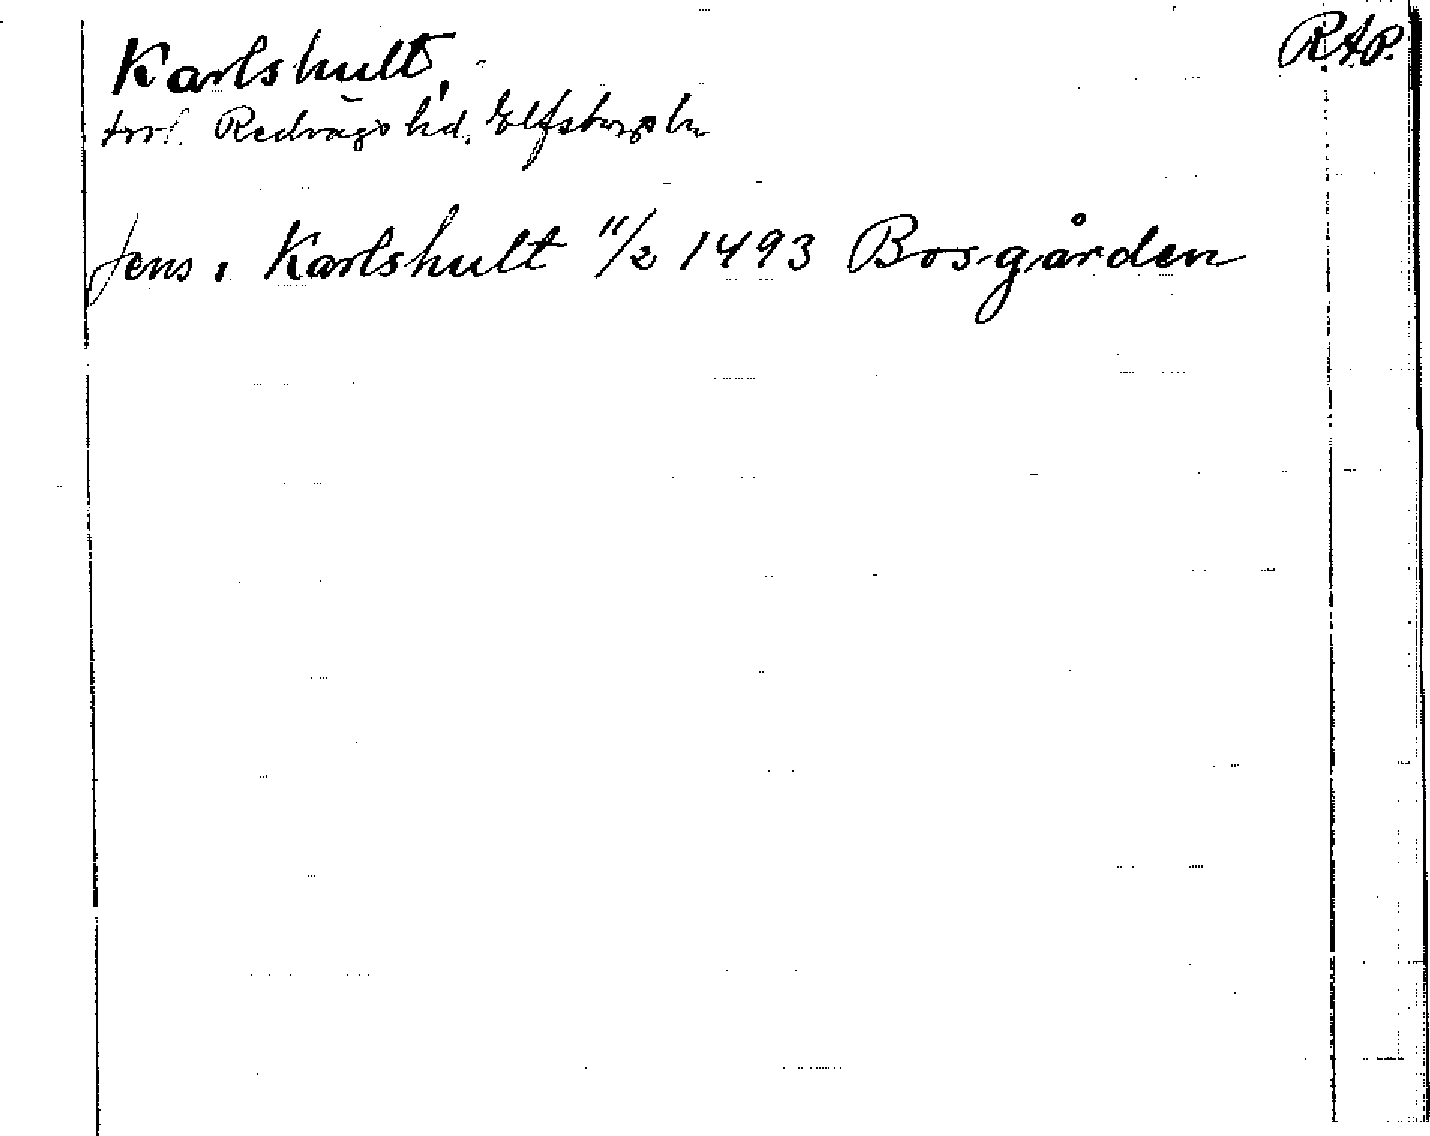 Karlshult, R.A.P.
trol. Redvägs hd. Elfsborgs ln
Jens i Karlshult 11/2 1493 Bosgården